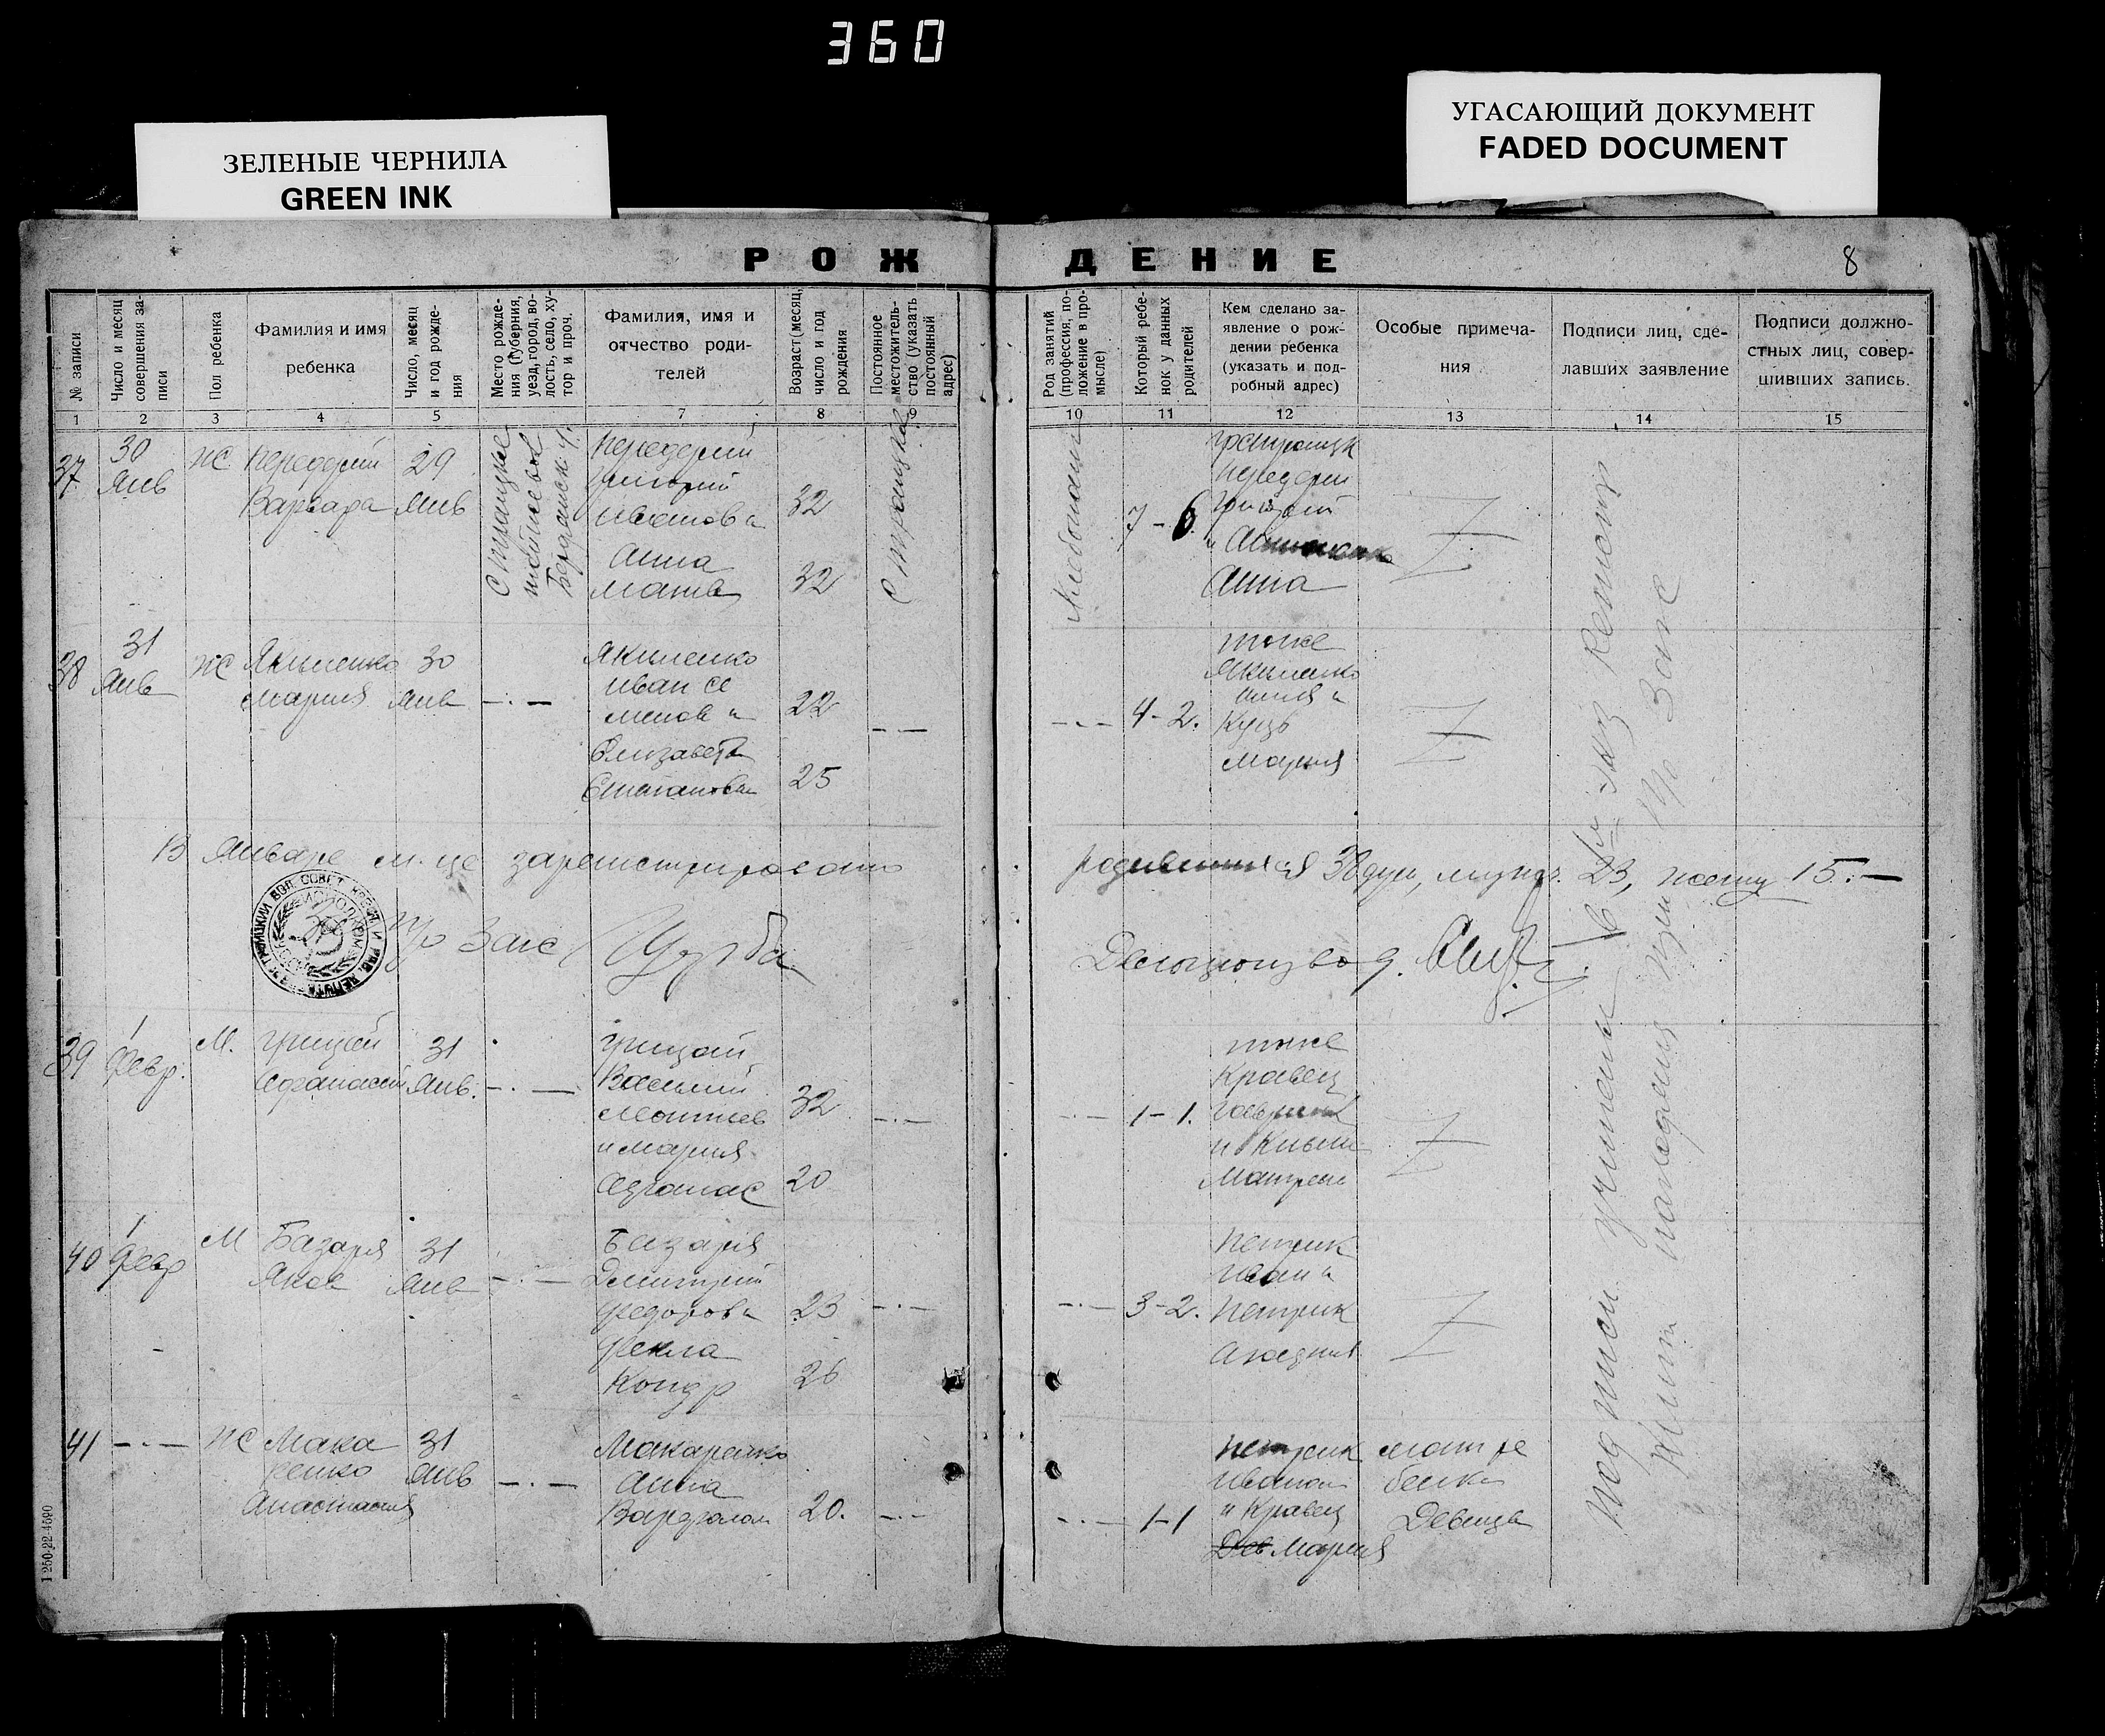 360
ЗЕЛЕНЫЕ ЧЕРНИЛА
GREEN INK
УГАСАЮЩИЙ ДОКУМЕНТ
FADED DOCUMENT
РОЖДЕНИЕ
8
№ записи
Число и месяц совершения за-
писи
Пол ребенка
Фамилия и имя
ребенка
Число, месяц
и год рожде-
ния
Место рожде-
ния (губерния,
уезд, город, во-
лость, село, ху-
тор и проч.
Фамилия, имя и
отчество роди-
телей
Возраст (месяц,
число и год
рождения
Постоянное
местожитель-
ство (указать
постоянный
адрес)
Род занятий
(профессия, по-
ложение в про-
мысле)
Который ребе-
нок у данных
родителей
Кем сделано за-
явление о рож-
дении ребенка
(указать и под-
робный адрес)
Особые примеча-
ния
Подписи лиц, сде-
лавших заявление
Подписи должно-
стных лиц, совер-
шивших запись.
1 2 3 4 5 6 7 8 9 10 11 12 13 14 15
37
30
Янв
ж
Передерий
Варвара
29
Янв
С Троицкое
Бердянск. у.
Передерий
Григорий
Иванов и
Анна
Матв
32
32
С Троицкое
Хлебопаш
7-6
Передерий
Григорий
и
Анна
38
31
Янв
ж
Якименко
Мария
30
Янв
-·-
Якименко
Иван Се
менов и
Елизавета
Степанова
22
25
-·-
-·-
4-2.
тоже
Якименко
Куць
Мария
В Январе м-це зарегистрировано
родившихся 38 душ, мужч. 23, женщ 15.-
П/о Загс Цурба
Делопроизвод.
39
1
Февр.
М.
Грицай
Афанасий
31
Янв.
-·-
Грицай
Василий
Матвеев
и Мария
Афанас
32
20
-·-
-·-
1-1.
тоже
Кравец
Гаврил
и
Матрена
40
1
Февр
М
Базаря
Яков
31
Янв
-·-
Базаря
Дмитрий
Федоров и
Фекла
Кондр
23
26
-·-
-·-
3-2.
Петрик
Иван и
Петрик
41
-·-
ж
Мака
ренко
Анастасия
31
Янв
-·-
Макаренко
Анна
Варфолом
20.
-·-
-·-
1-1
Петрик
Иван
и Кравец
Дев Мария
мать ре
бенка
Девица
Подписи учинены в 1-м экз Регистр
П/о Загс
1 250-22-4590